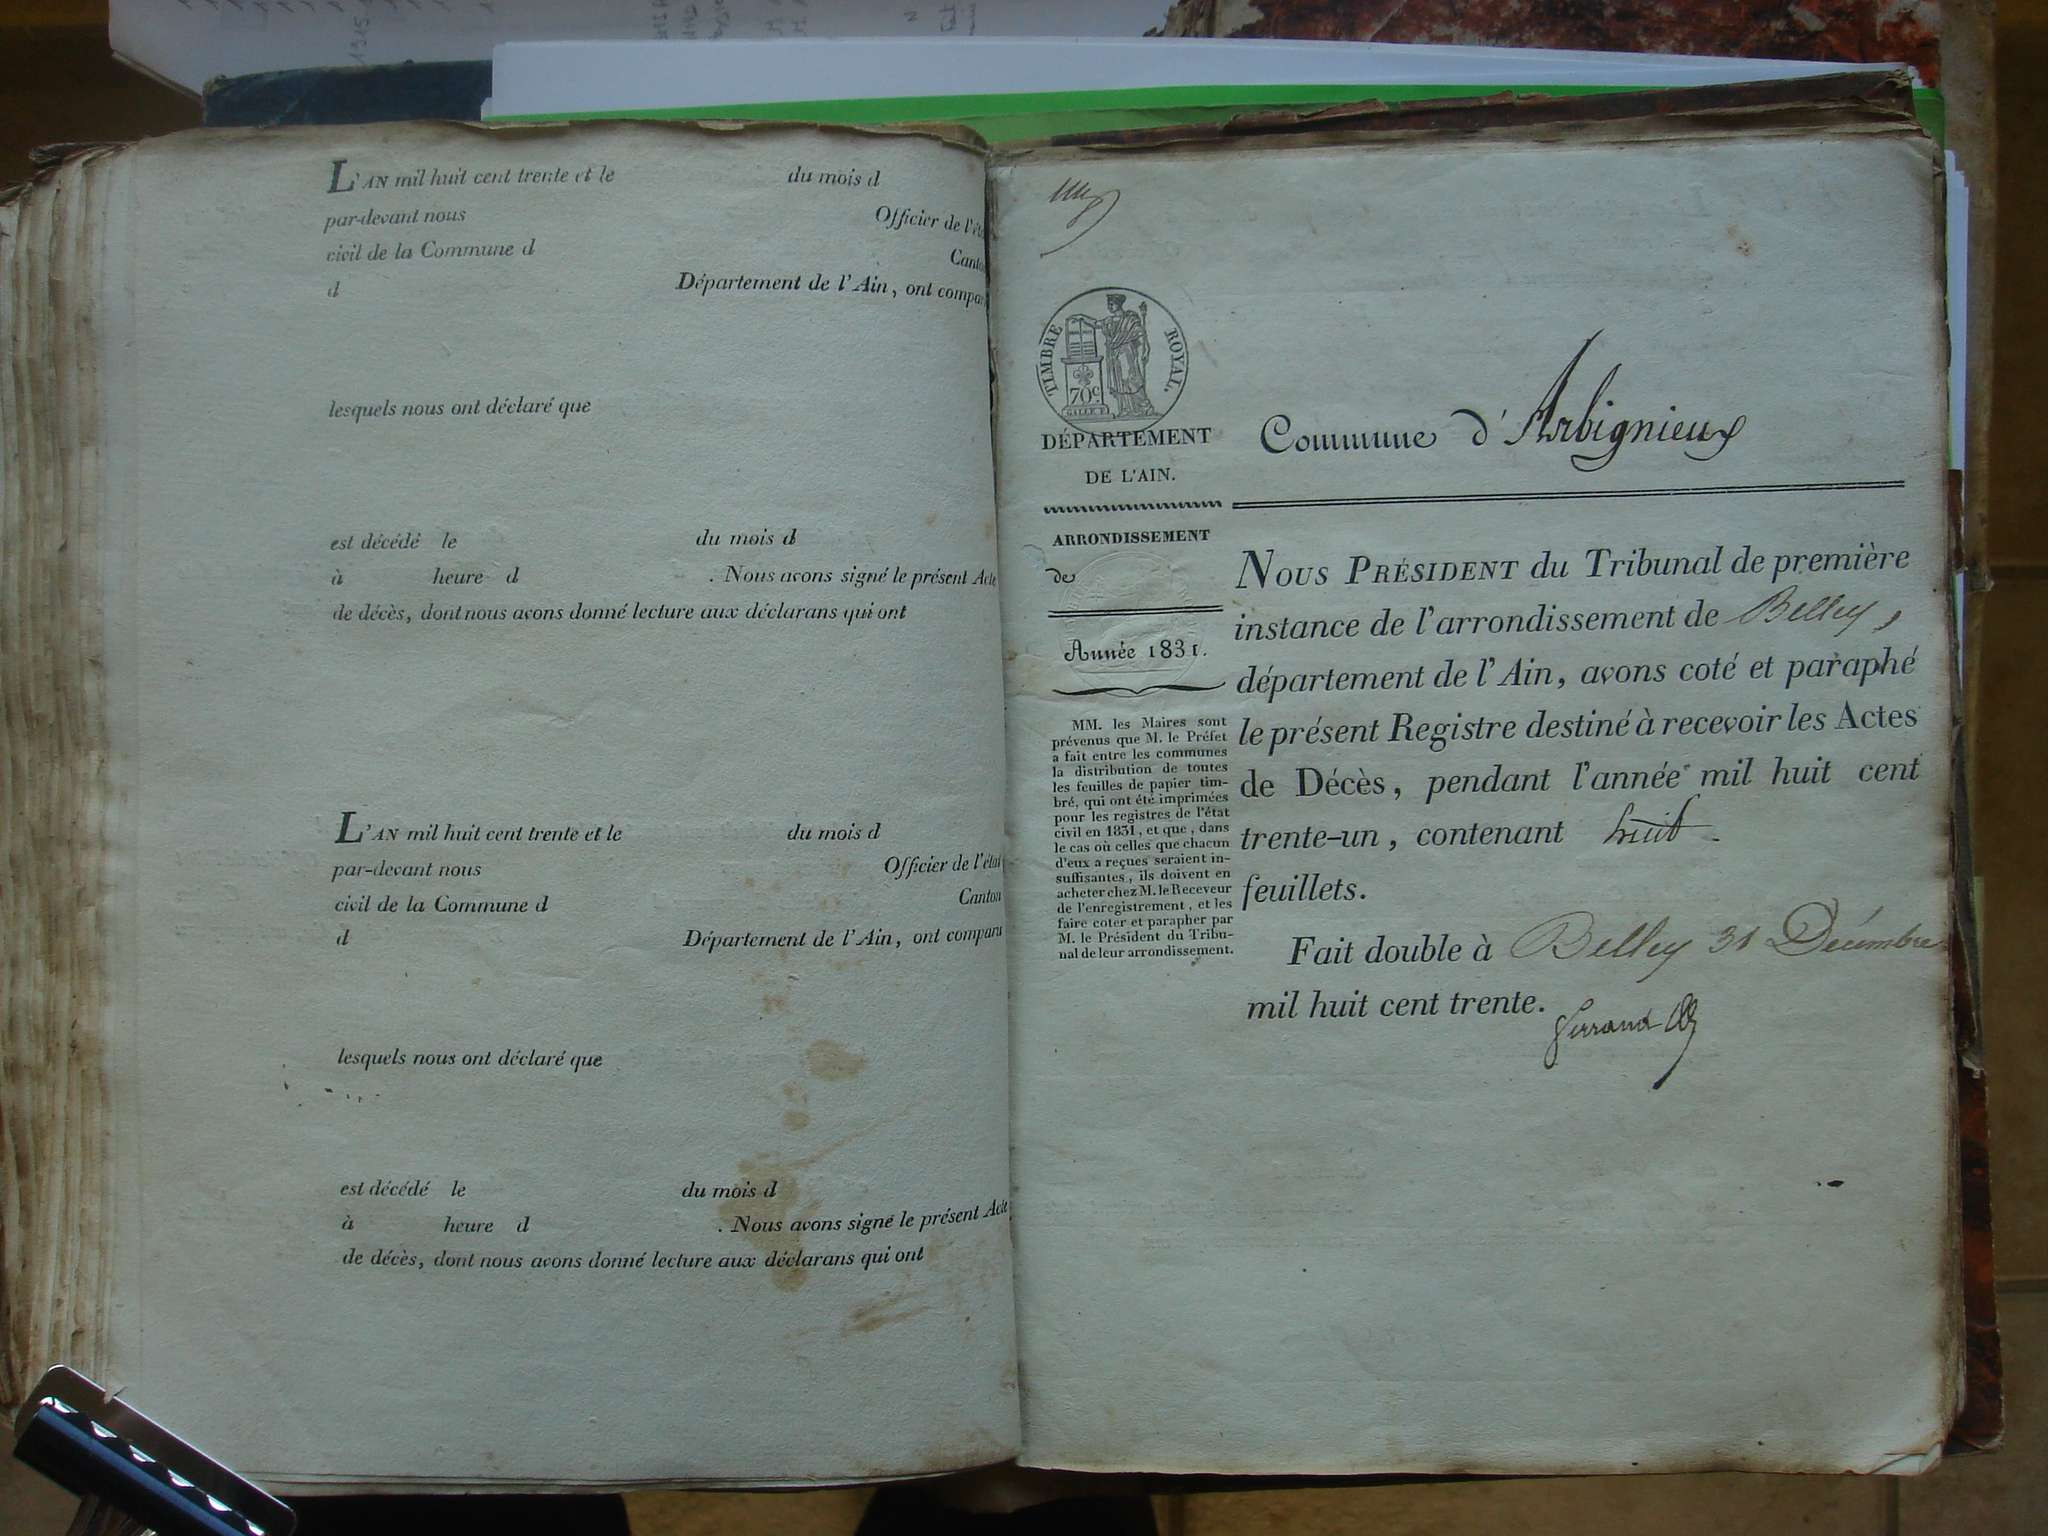 L'AN mil huit cent trente et le du mois d
par-devant nous Officier de l'éta
civil de la Commune d Canto
d Département de l'Ain, ont compar
lesquels nous ont déclaré que
est décédé le du mois d
à heure d . Nous avons signé le présent Acte
de décès, dont nous avons donné lecture aux déclarans qui ont
L'AN mil huit cent trente et le du mois d
par-devant nous Officier de l'état
civil de la Commune d Canton
d Département de l'Ain, ont comparu
lesquels nous ont déclaré que
est décédé le du mois d
à heure d . Nous avons signé le présent Acte
de décès, dont nous avons donné lecture aux déclarans qui ont
TIMBRE ROYAL.
70c
DÉPARTEMENT
DE L'AIN.
ARRONDISSEMENT
de
Année 1831.
MM. les Maires sont
prévenus que M. le Préfet
a fait entre les communes
la distribution de toutes
les feuilles de papier tim-
bré, qui ont été imprimées
pour les registres de l'état
civil en 1831, et que, dans
le cas où celles que chacun
d'eux a reçues seraient in-
suffisantes, ils doivent en
acheter chez M. le Receveur
de l'enregistrement, et les
faire coter et parapher par
M. le Président du Tribu-
nal de leur arrondissement.
Commune d'Arbignieux
NOUS PRÉSIDENT du Tribunal de première
instance de l'arrondissement de Belley,
département de l'Ain, avons coté et paraphé
le présent Registre destiné à recevoir les Actes
de Décès, pendant l'année mil huit cent
trente-un, contenant huit
feuillets.
Fait double à Belley 31 Décembre
mil huit cent trente.